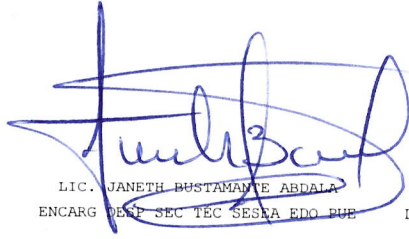 LIC. JANETH BUSTAMANTE ABDALA
ENCARG DESP SEC TEC SESEA EDO PUE